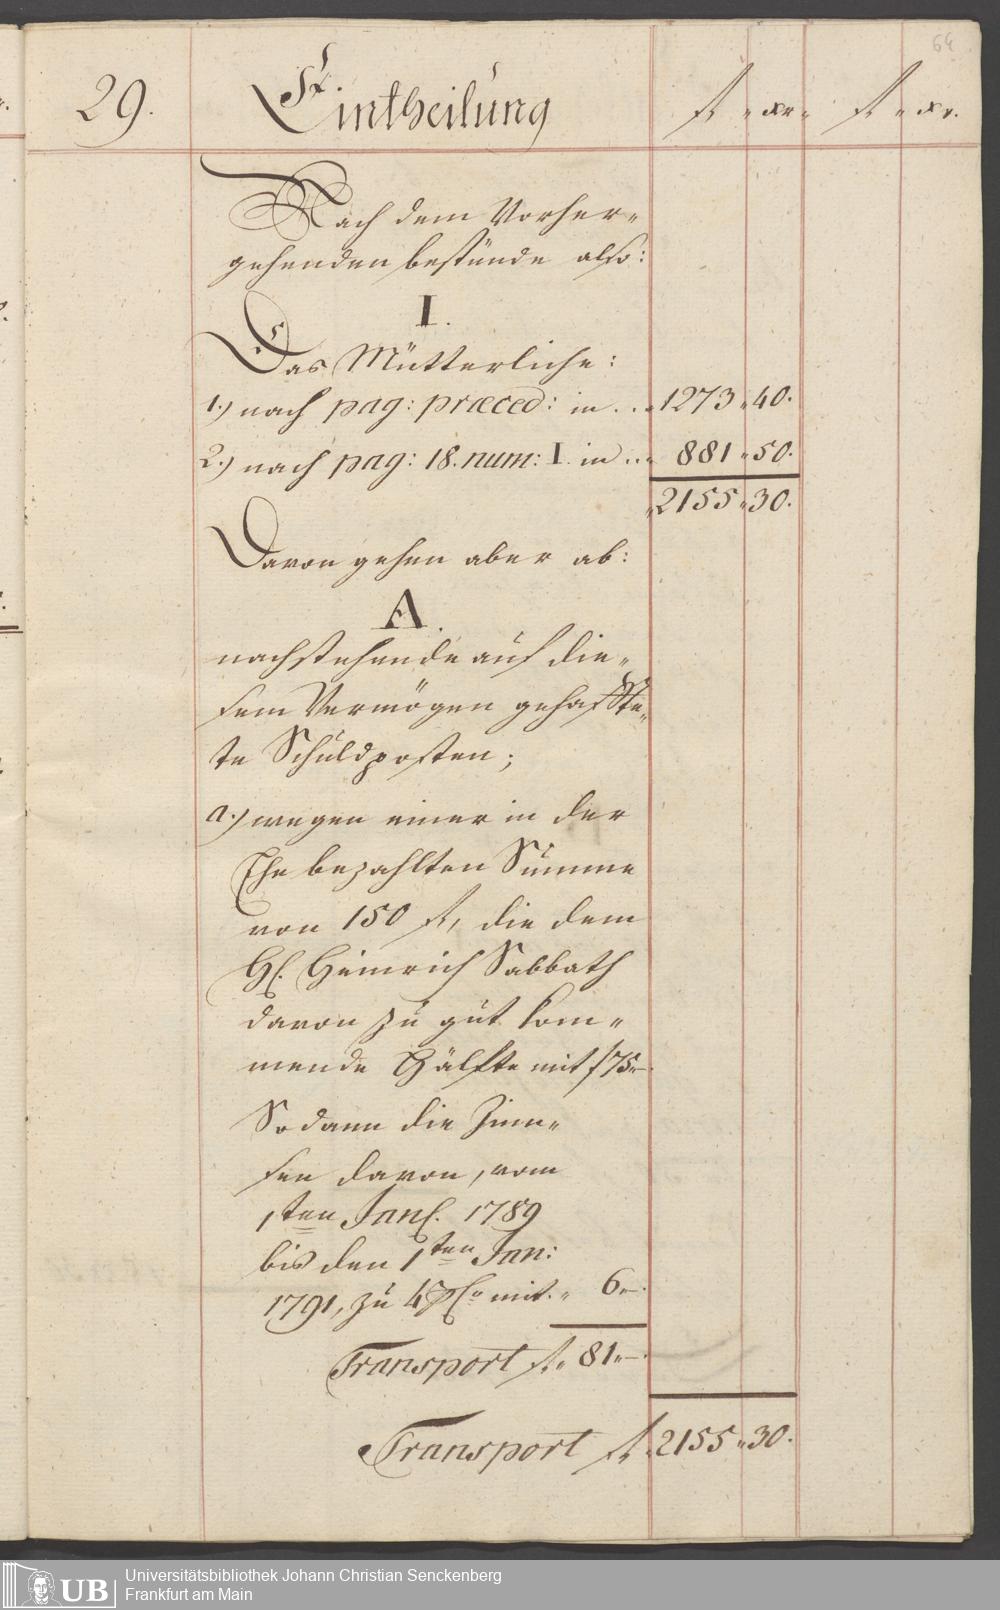 64
29. Eintheilung f. xr. f. xr.
Nach dem Vorher„
gehenden bestünde also:
I.
Das Mütterliche:
1.) nach pag: præced: in ... 1273 „ 40.
2.) nach pag: 18. num: I. in ... 881 „ 50.
2155 „ 30.
Davon gehen aber ab:
A.
nachstehende auf die„
sem Vermögen gehaffte„
te Schuldposten;
a.) wegen einer in der
Ehe bezahlten Summe
von 150 f, die dem
H. Heinrich Sabbath
davon zu gut kom„
mende Hälfte mit f 75„—
Sodann die Zinn„
sen davon, vom
1ten Jan. 1789
bis den 1ten Jan:
1791, zu 4 pC. mit. „ 6„—.
Transport f. 81„—.
Transport f. 2155 „ 30.
UB
Universitätsbibliothek Johann Christian Senckenberg
Frankfurt am Main